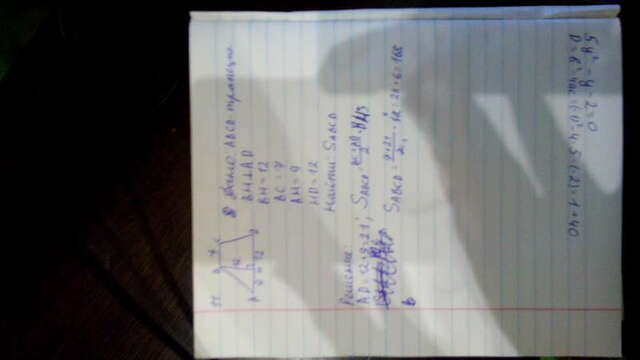 11.
B 7 C
12
A 9 H 12 D
Дано ABCD трапеция
BH⊥AD
BH = 12
BC = 7
AH = 9
HD = 12
Найти: SABCD
Решение:
AD = 12+9 = 21; SABCD = (BC+AD)/2 ·
SABCD = (7+21)/2 · 12 = 28 · 6 = 168
5y² - y - 2 = 0
D = b² - 4ac = (-1)² - 4 · 5 · (-2) = 1 + 40